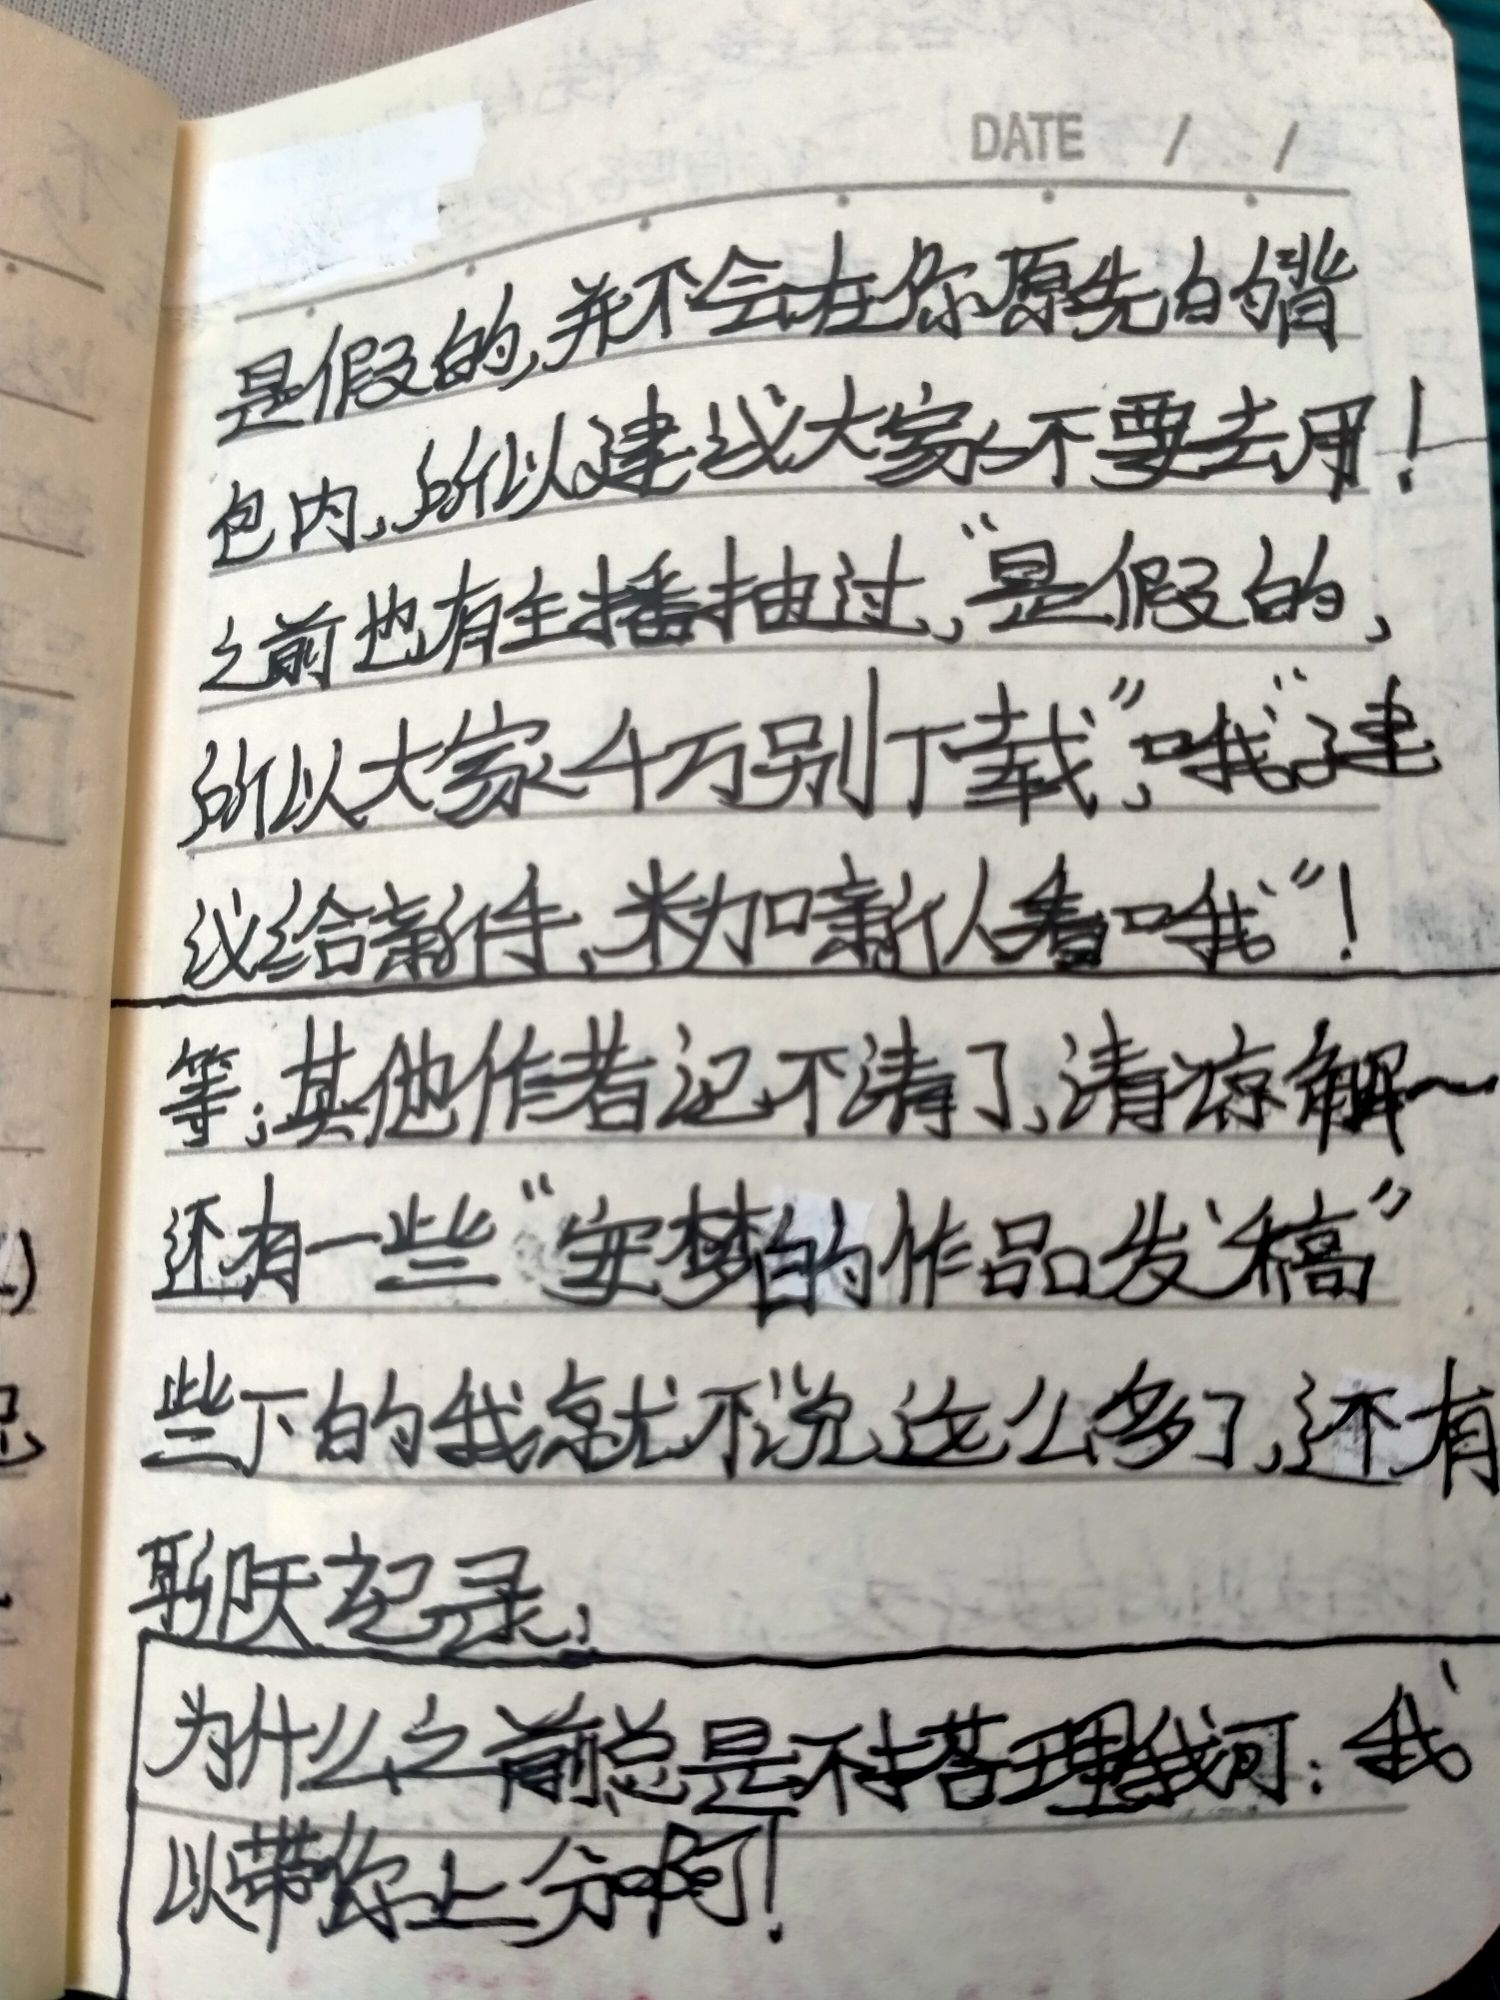 DATE / /
是假的,并不会在你原先的背
包内,所以建议大家不要去用!
之前也有主播抽过,“是假的,
所以大家千万别下载”,哦“建
议给新手,米加新人看哦”!
等;其他作者记不清了,请谅解~
还有一些“安梦的作品发稿”
些下的我就不说这么多了,还有
聊天记录;
为什么之前总是不搭理我可:我
以带你上分啊!